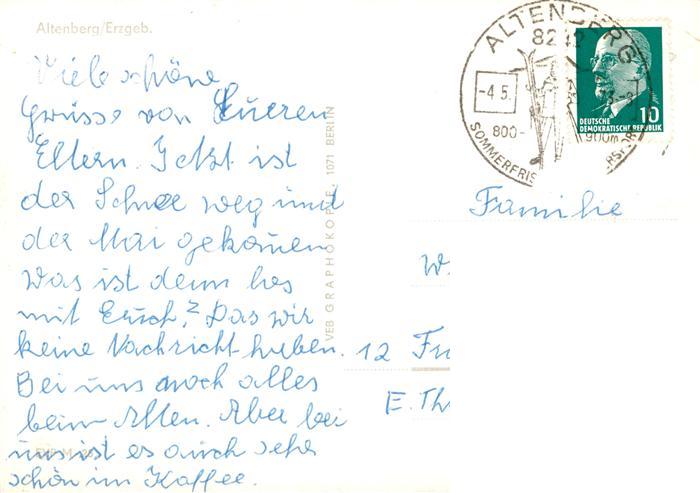 Altenberg/Erzgeb.
Viele schöne
Grüsse von Eueren
Eltern. Jetzt ist
der Schnee weg und
der Mai gekomen
Was ist denn los
mit Euch? Das wir
keine Nachricht haben.
Bei uns noch alles
beim Alten. Aber bei
uns ist es auch sehr
schön im Kaffee.
VEB GRAPHOKOPIE, 1071 BERLIN
ALTENBERG
8242
-4.5.
800-
900m
SOMMERFRIS
DEUTSCHE
DEMOKRATISCHE REPUBLIK
10
Familie
W.
12
E. Th